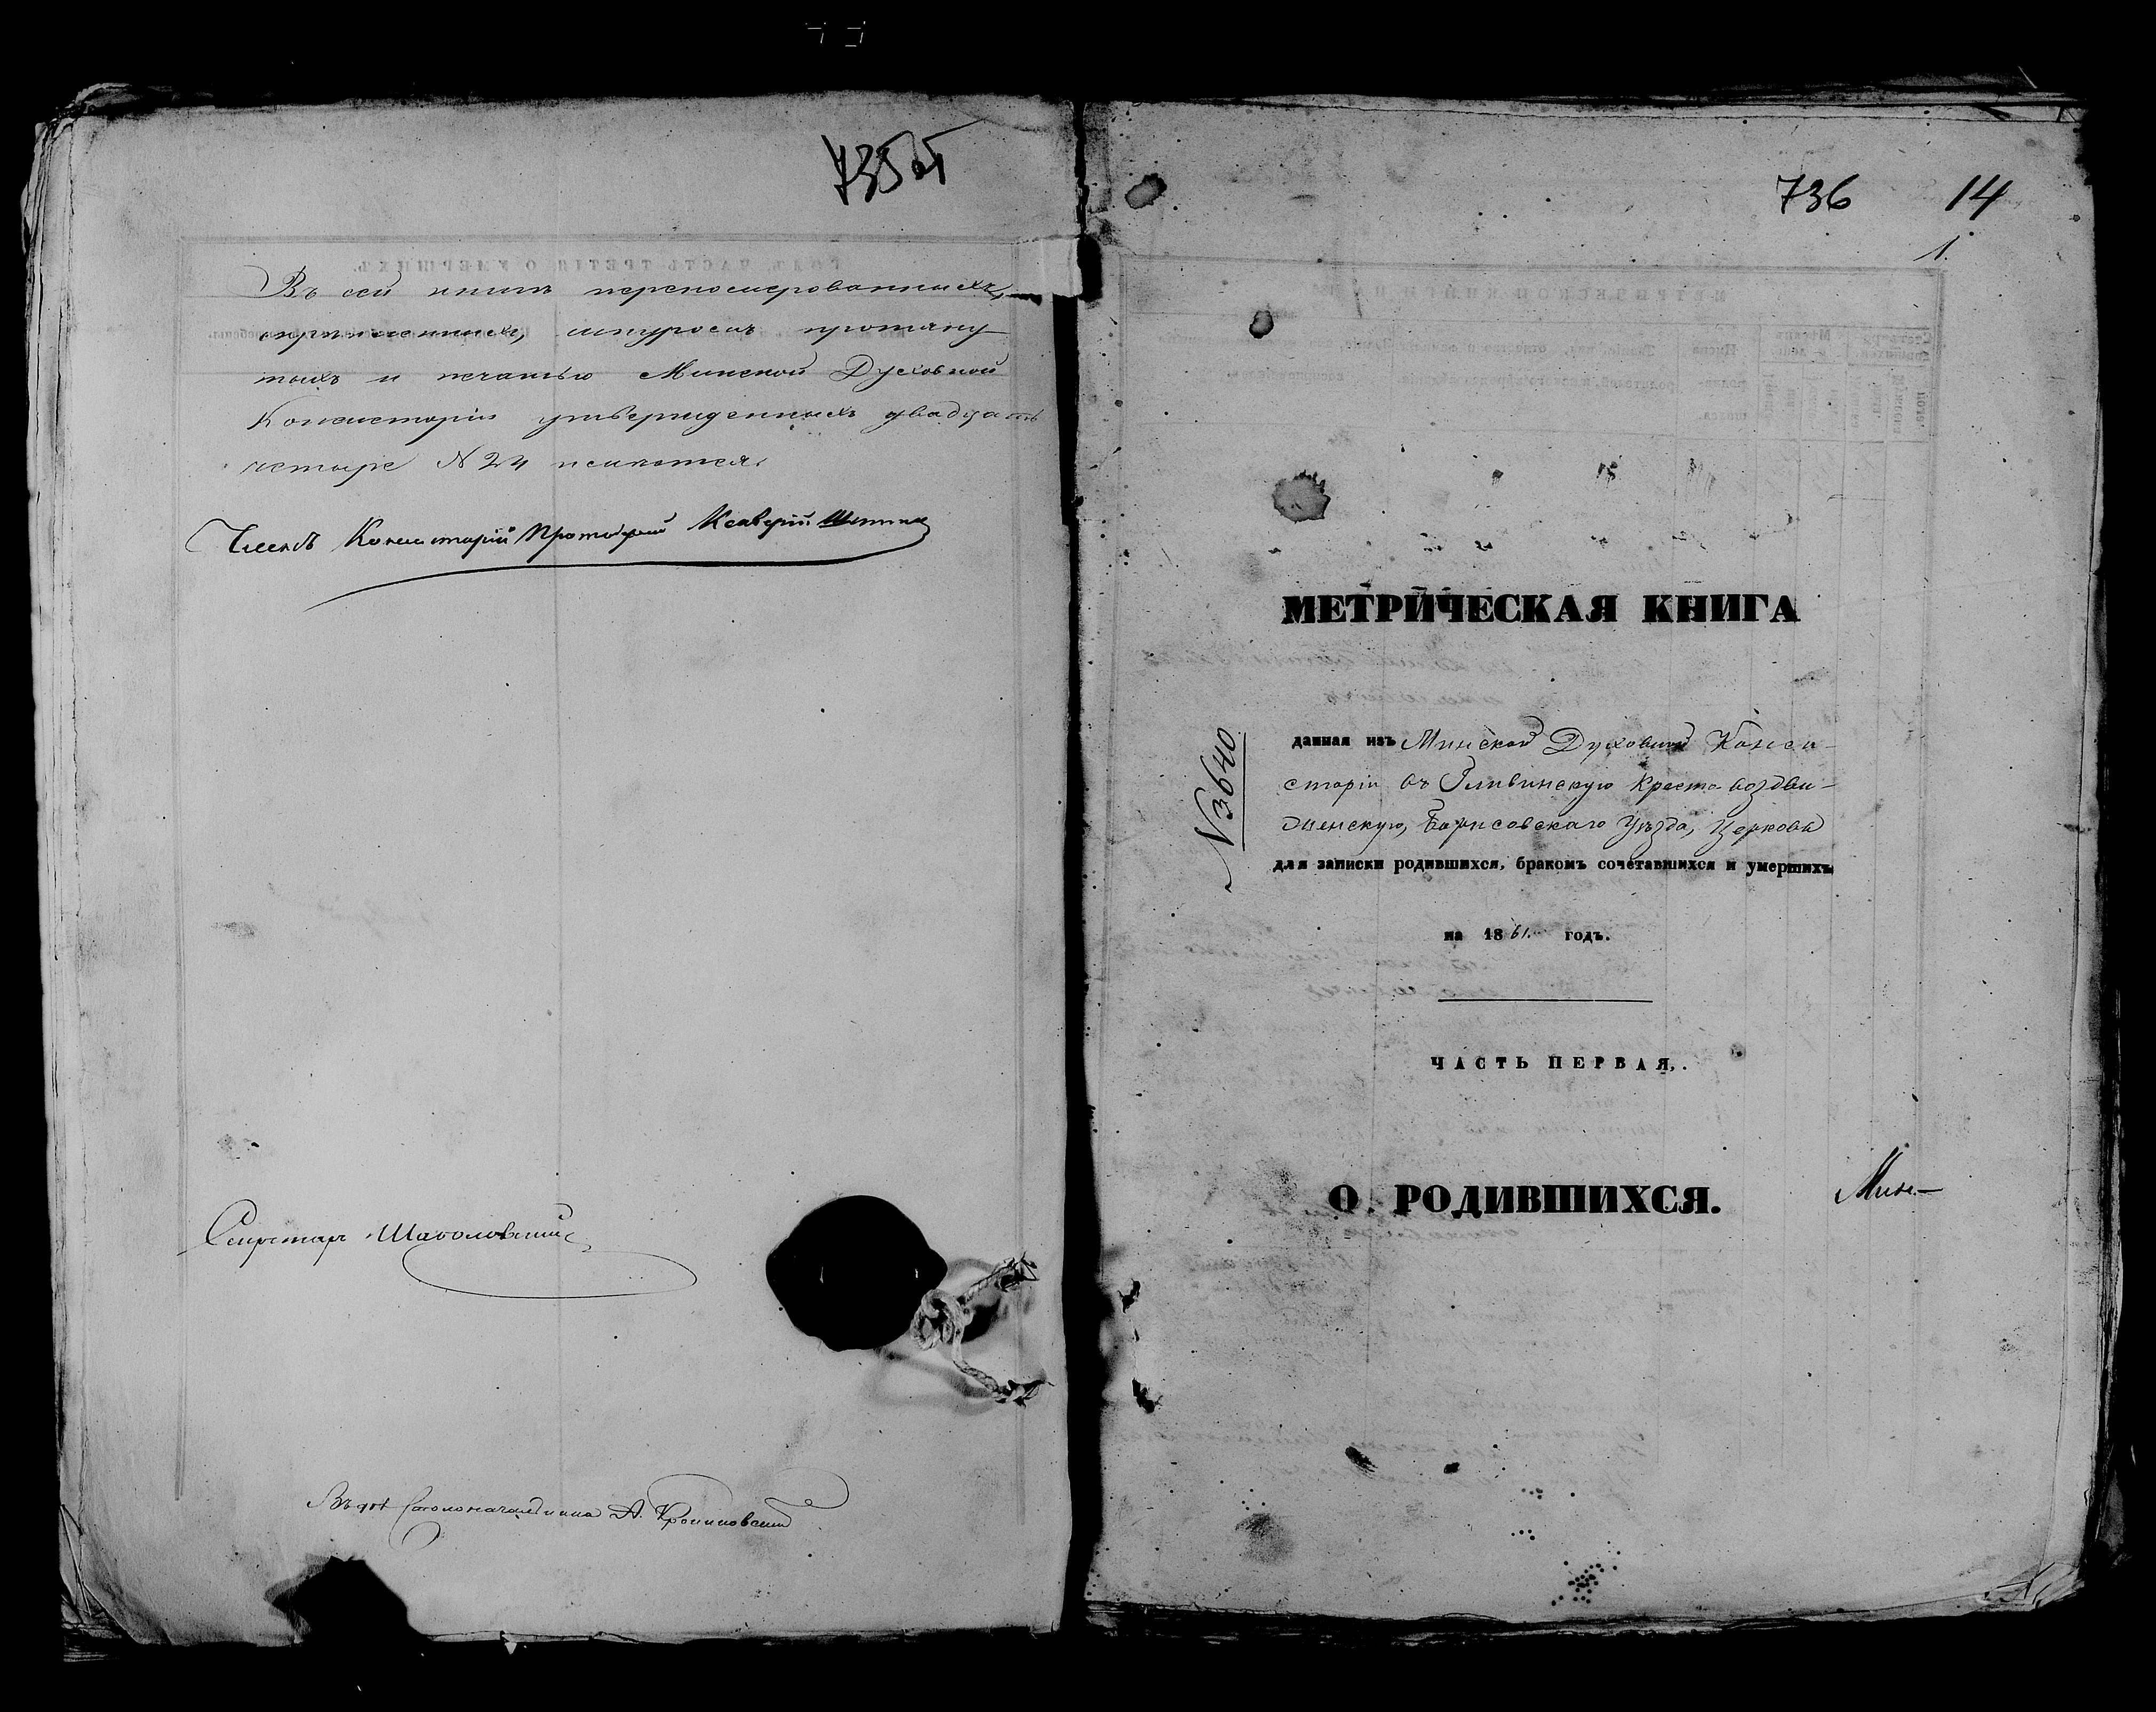 735 об
Въ сей книгѣ перенумерованныхъ,
скрѣпленныхъ, шнуромъ протяну
тыхъ и печатью Минской Духовной
Консисторіи утвержденныхъ двадцать
четыре N 24 
Членъ Консисторіи Протоіерей Ксаверій
Секретарь
Столоначальника А.
736 14
1.
МЕТРИЧЕСКАЯ КНИГА
N 3640
данная изъ Минской Духовной Конси-
сторіи въ Гливинскую Кресто-воздви-
женскую, Борисовскаго Уѣзда, Церковь
для записки родившихся, бракомъ сочетавшихся и умершихъ
на 1861. годъ.
ЧАСТЬ ПЕРВАЯ,.
О РОДИВШИХСЯ.